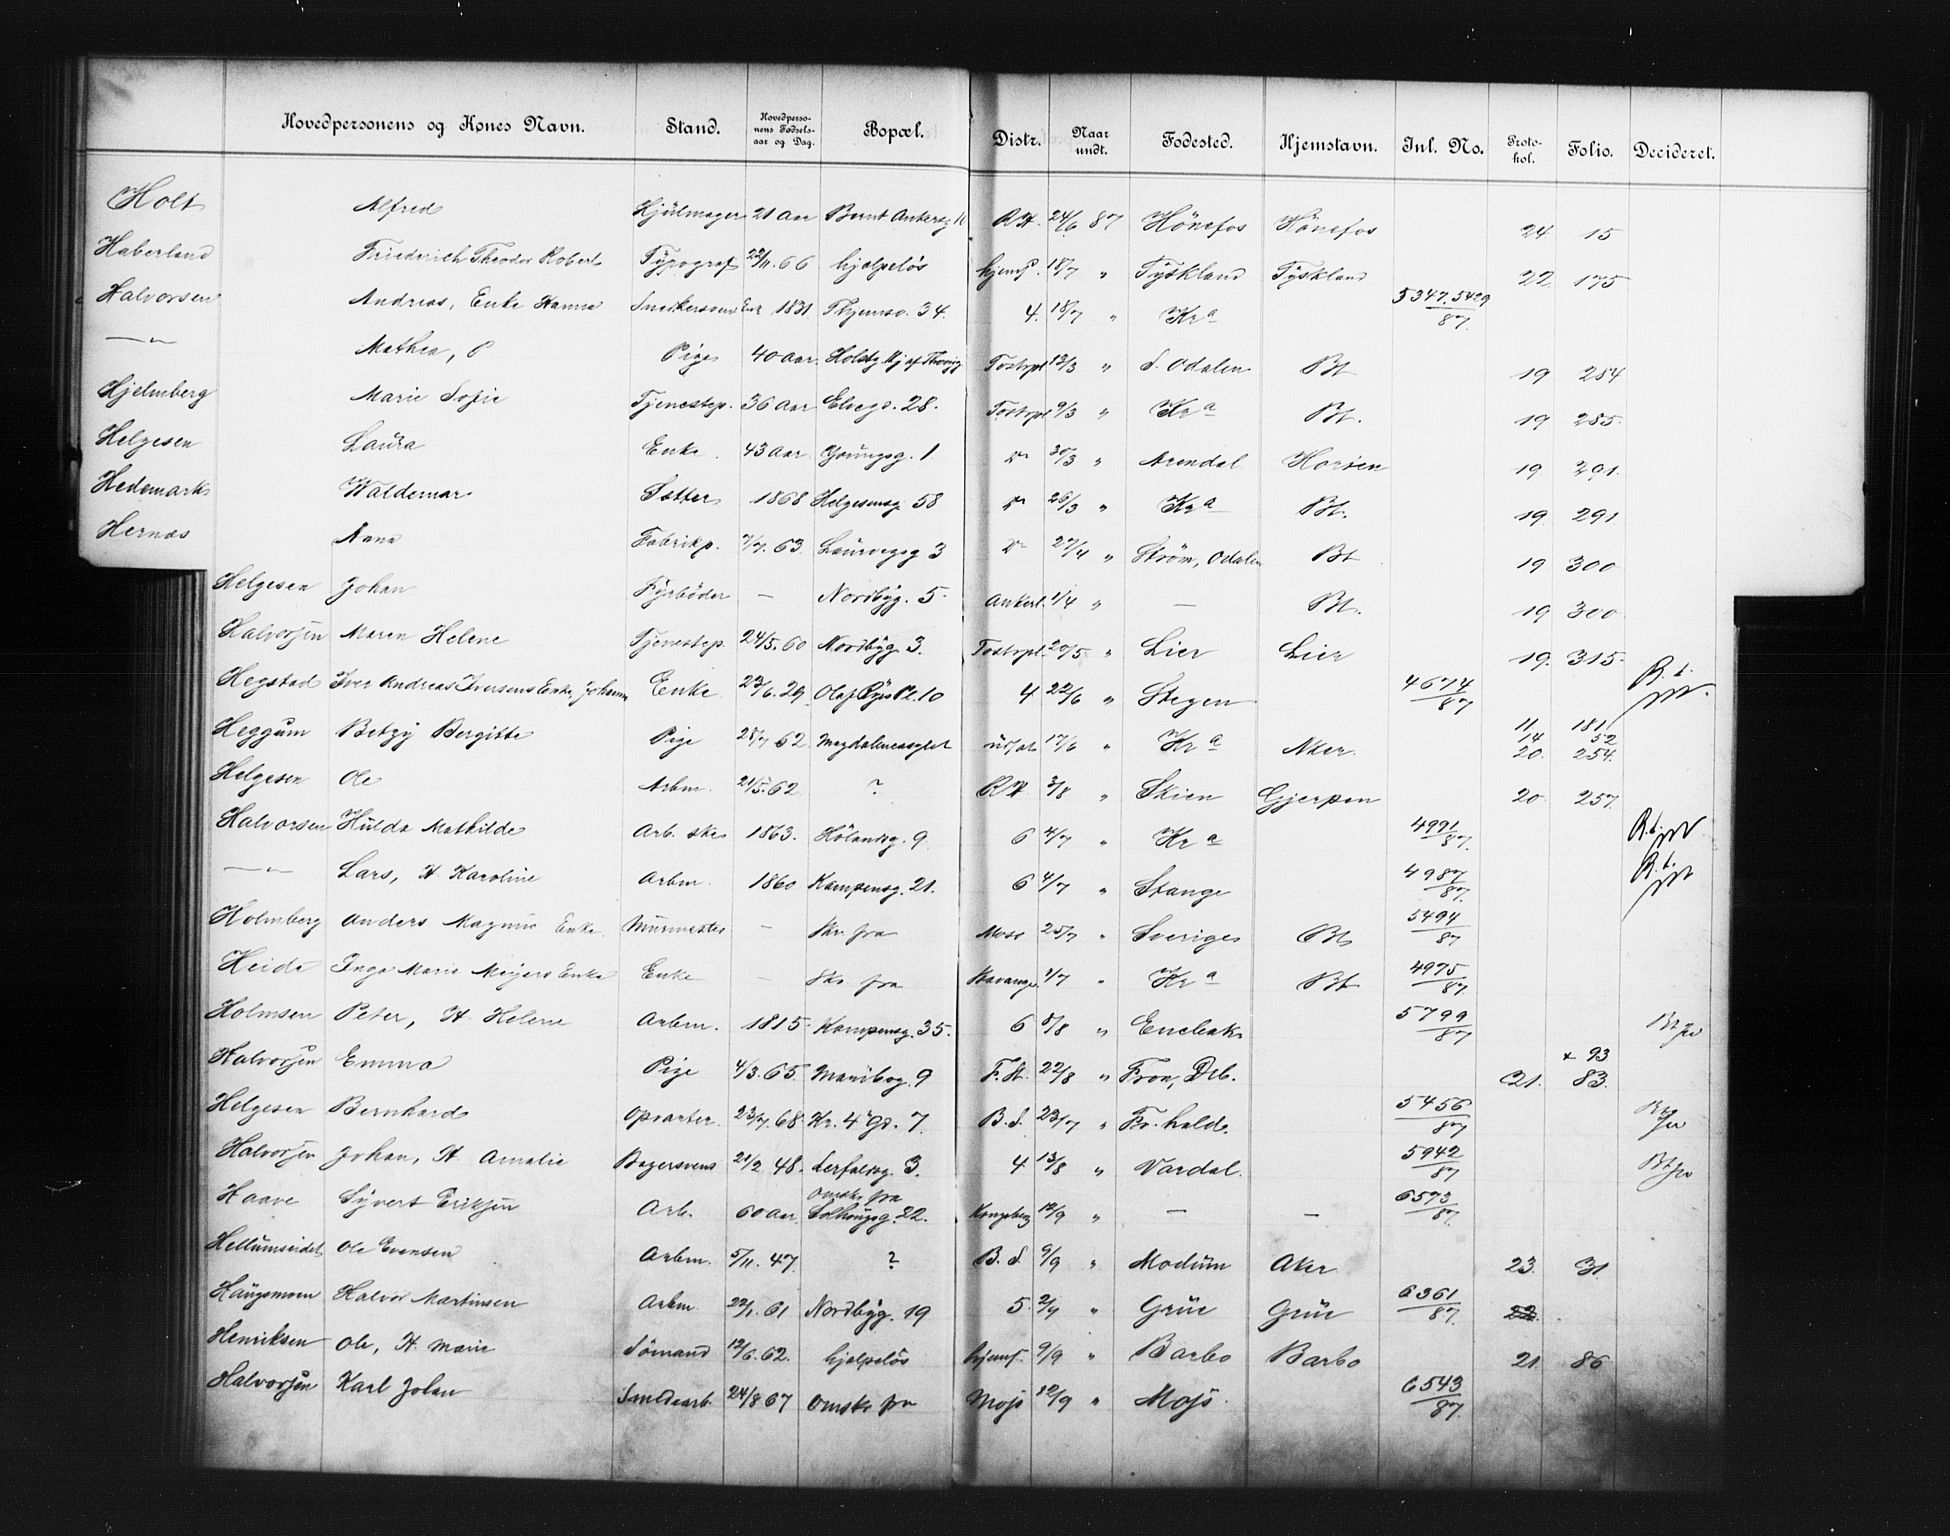 Hovedpersonens og Kones Navn. Stand. Hovedpersonens Fødselsaar og Dag. Bopæl. Distr. Naar undt. Fødested. Hjemstavn. Inl. No. Protokol. Folio. Decideret.
Holt Alfred Hjulmager 21 Aar Bernt Ankersg 11 R.H. 24/6 87 Hønefos Hønefos 24 15
Haberland Friederich Theodor Robert Typograf 22/11 66 hjælpeløs hjemf. 18/7 " Tyskland Tyskland 22 175
Halvorsen Andreas, Enke Hanna Enk 1831 34. 4. 18/7 " Kra 5347.5429/87
—"— Mathea, P Pige 40 Aar. Tostrpl 12/3 " S. Odalen Bt 19 284
Hjelmberg Marie Sofie Tjenestep. 36 Aar Elvegd. 28. Tostrpl 9/3 " Kra Bt. 19 285
Helgesen Laura Enke. 43 Aar Youngsg. 1 Do 30/3 " Arendal Horsen 19 291.
Hedemark Waldemar Sætter 1868 Helgesensg 58 Do 26/3 " Kra Bt. 19 291
Hernæs Anna Fabrikp. 7/7. 63. Laurvegsg 3 Do 27/4 " Strøm, Odalen Bt 19 300
Helgesen Johan Fyrbøder — Nordbyg. 5. Ankerl. 1/4 " — Bt. 19 300
Halvorsen Maren Helene Tjenestep. 24/5. 60 Nordbyg 3. Tostrpl. 20/5 " Lier Lier 19. 315
Hegstad Iver Andreas Iversens Enke, Johanne Enke 23/6. 29 Olaf Ryes Pl. 10 4 22/6 " Stegen 4674/87 B.t.
Heggum Betzy Bergitte Pige 28/7 62 Magdaleneasylet 17/6 " Kra Aker. 11 181 14 52 20. 254.
Helgesen Ole Arbm. 21/5. 62 ? R.H. 3/8 " Skien Gjerpen 20. 257.
Halvorsen Hulda Mathilde Arb. ske 1863. Hølandsg. 9. 6 4/7 " Kra 4991/87. B.t.
—"— Lars, H. Karoline Arbm. 1860 Kampensg. 21. 6 4/7 " Stange 4987/87. B.t.
Holmberg Anders Magnus Enke. Murmester — Skr. fra Moss 25/7 " Sverige Bt 5494/87
Heide Inga Marie Meyers Enke Enke — Skr. fra Stavanger 1/7 " Kra Bt 4975/87.
Holmsen Peter, H. Helene Arbm. 1815 Kampensg. 35. 6 8/8 " Enebak 5799/87 Bt
Halvorsen Emma Pige 4/3. 65. Maribog. 9 F.St. 22/8 " Fron, Drb. 21. x 93 83.
Helgesen Bernhard Opvarter. 23/7. 68. Kr. 4 Gd. 7. B.S. 23/7 " Fr. hald. 5456/87 Bt
Halvorsen Johan, H. Amalie Bagersvend 21/2 48. Lerfaldsg. 3. 4 13/8 " Vardal. 5942/87 Bt
Haave Syvert Eriksen Arb. 60 Aar. Omsk. fra Solhougsg. 22. Kongsberg 12/9 " — — 6573/87.
Hellumseidet Ole Evensen Arbm. 5/11. 47. ? B.S. 9/9 " Modum Aker 23. 31.
Haugsmoen Halvor Martinsen Arbm. 22/1. 61 Nordbyg. 19 5. 2/9 " Grue Grue 6361/87. 22.
Henriksen Ole, H. Marie Sømand 12/6. 62. hjælpeløs hjemf. 9/9 " Barbo Barbo 21. 86
Halvorsen Karl Johan Smedearb. 24/8 67 Omsk. fra Moss 12/9 " Moss. 6543/87.